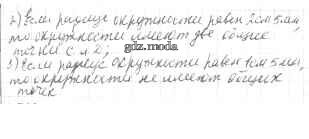 2) Если радиус окружности равен 2см 5мм,
то окружности имеют две общие
точки с и D;
gdz.moda
3) Если радиус окружности равен 1см 5мм,
то окружности не имеют общих
точек